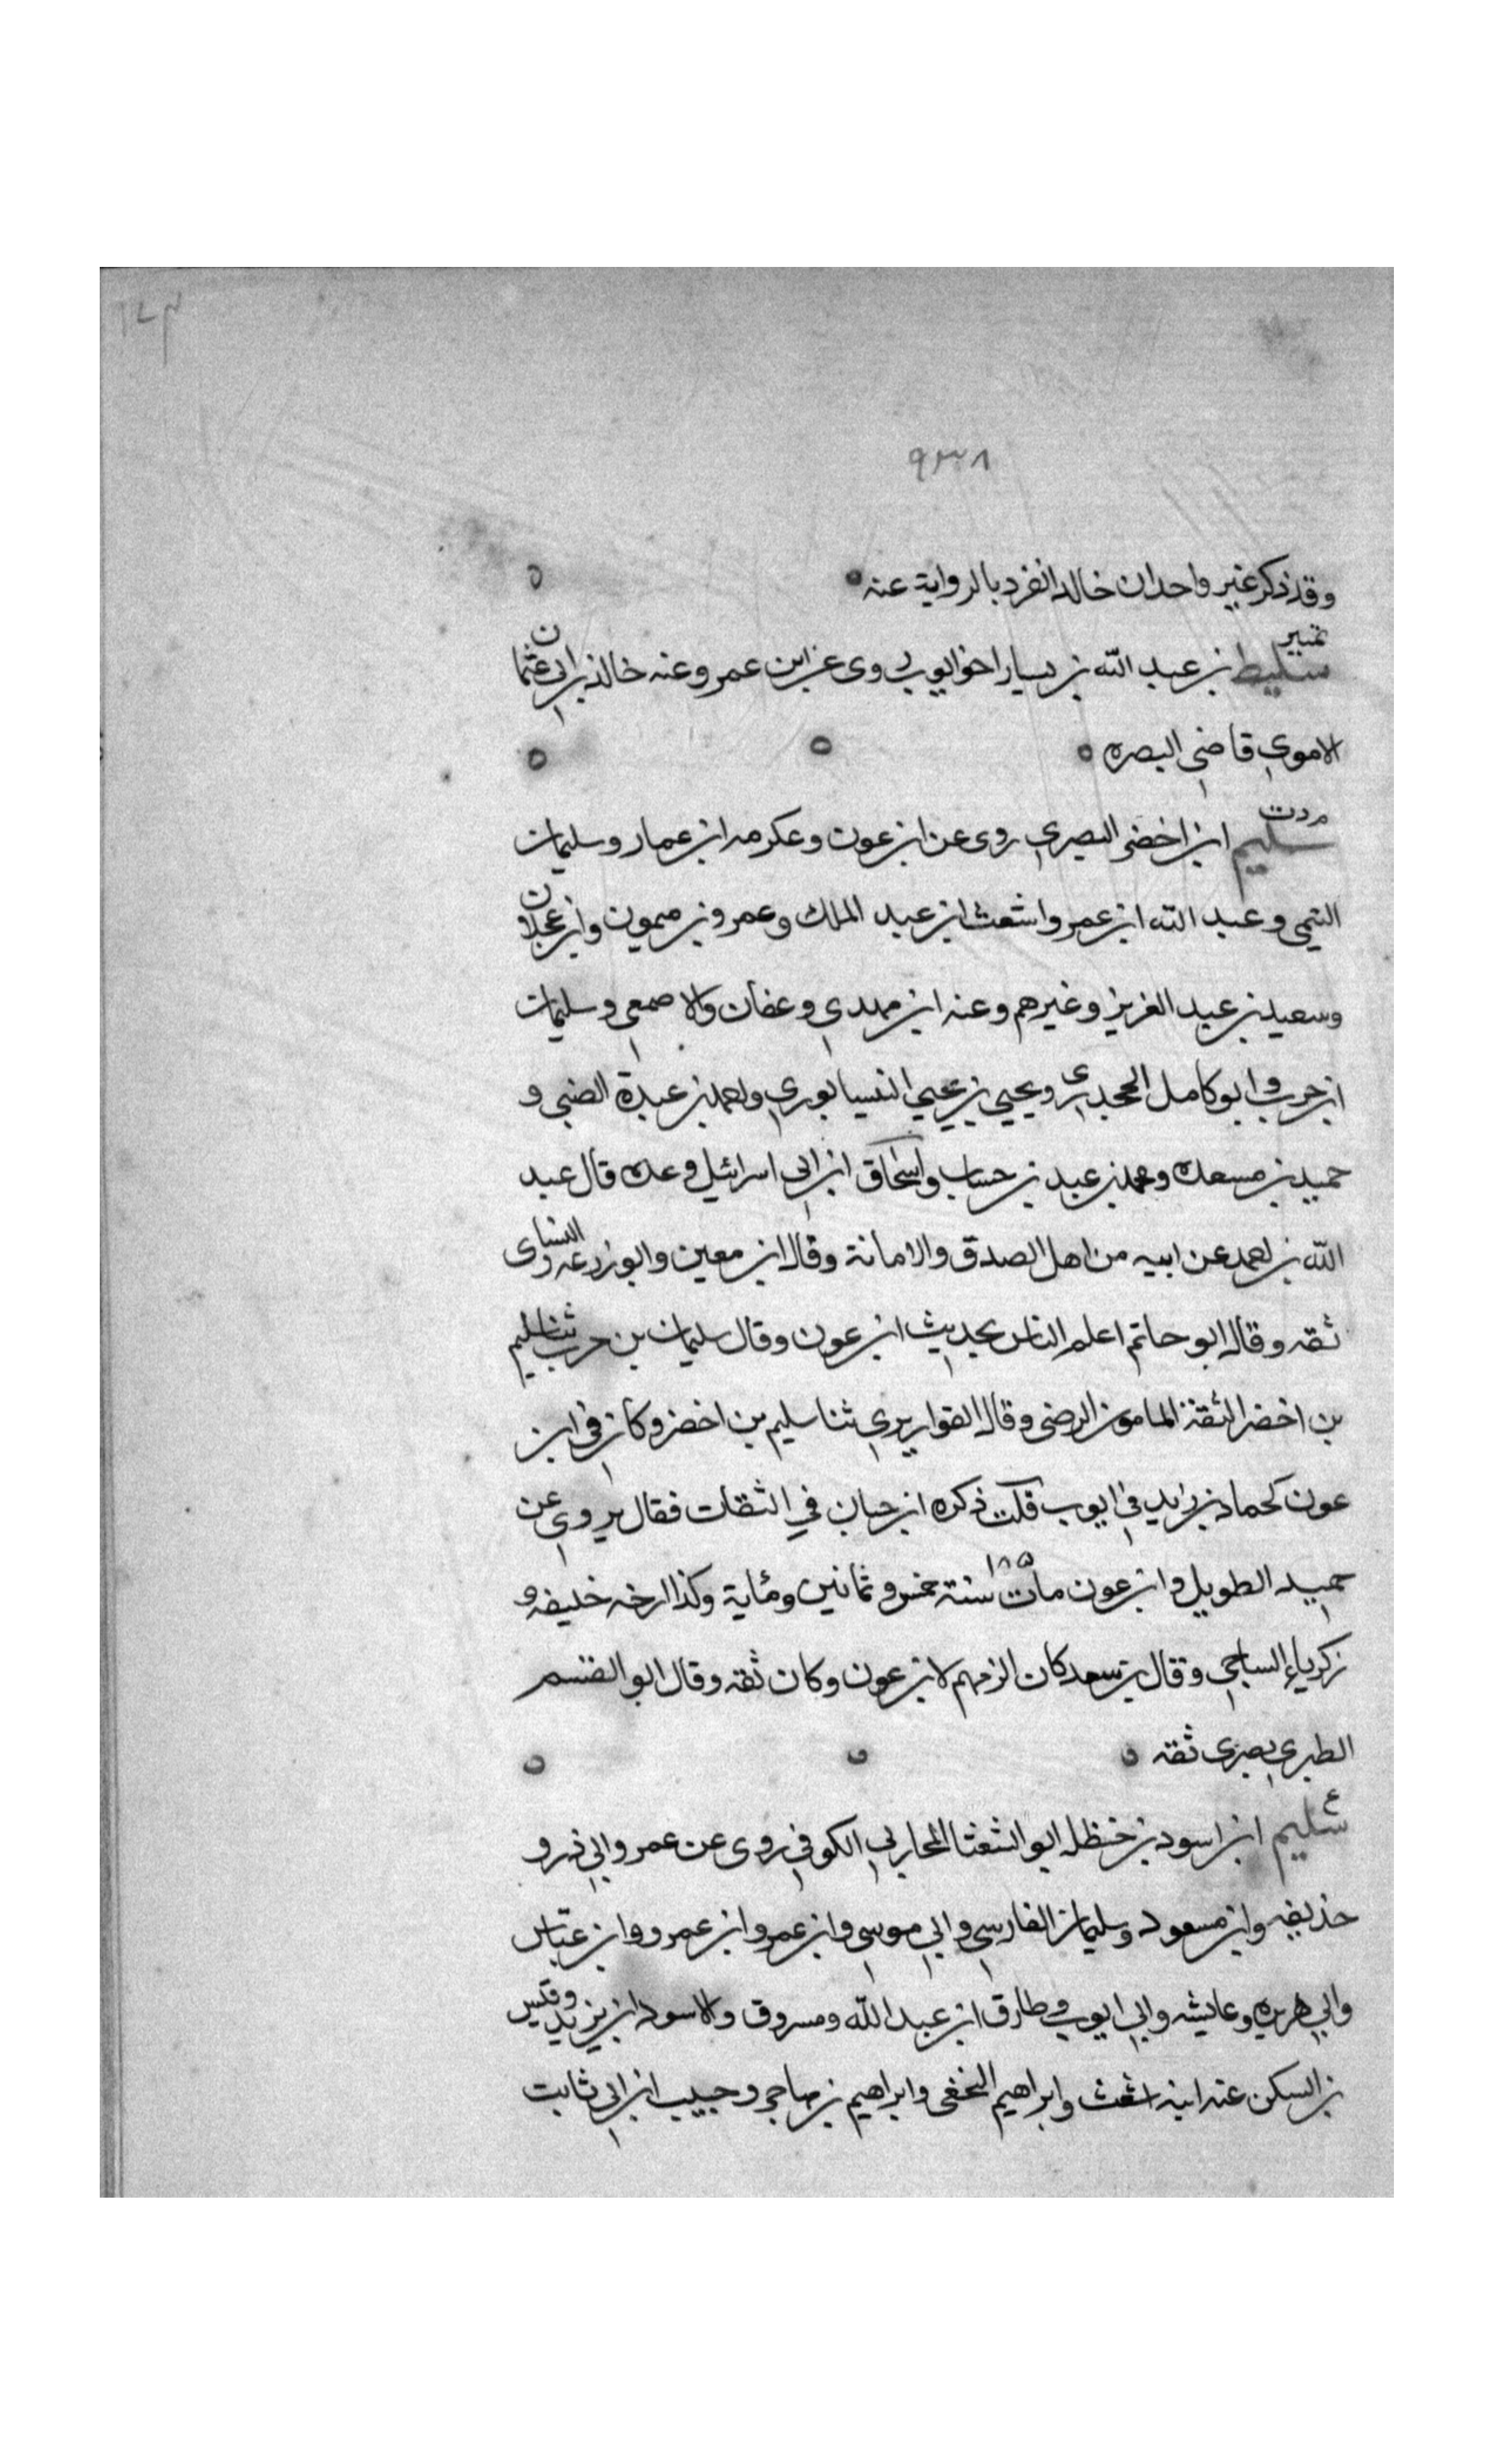 ٩٣٨
وقد ذكر غير واحد ان خالد انفرد بالرواية عنه
تمييز
سليط بن عبد الله بن يسار اخو ايوب روى عن ابن عمر وعنه خالد بن ابي عثمان
الاموي قاضي البصره
م د ت
سليم ابن اخضر البصري روى عن ابن عون وعكرمه ابن عمار وسليمان
التيمي وعبد الله ابن عمر واشعث ابن عبد الملك وعمرو بن ميمون وابن عجلان
وسعيد بن عبد العزيز وغيرهم وعنه ابن مهدي وعفان والاصمعي وسليمان
ابن حرب وابو كامل الجحدري ويحيي بن يحيي النيسابوري واحمد بن عبدة الضبي و
حميد بن مسعده ومحمد بن عبيد بن حساب واسحاق ابن ابي اسرائيل وعده قال عبد
الله بن احمد عن ابيه من اهل الصدق والامانة وقال ابن معين وابو زرعه والنساى
ثقه وقال ابو حاتم اعلم الناس بحديث ابن عون وقال سليمان بن حرب ثنا سليم
بن اخضر الثقة المامون الرضى وقال القواريري ثنا سليم بن اخضر وكان في ابن
عون كحماد بن زيد في ايوب قلت ذكره ابن حبان في الثقات فقال يروي عن
حميد الطويل وابن عون مات سنة خمس وثمانين ومٔاية وكذا ارخه خليفه و
١٨٥
زكرياء الساجي وقال بن سعد كان الزمهم لابن عون وكان ثقه وقال ابو القسم
الطبري بصرى ثقه
ع
سليم ابن اسود بن حنظله ابو الشعثا المحاربي الكوفي روى عن عمر وابي ذر و
حذيفه وابن مسعود وسليمان الفارسي وابي موسى وابن عمر وابن عمرو وابن عباس
وابي هريره وعايشه وابي ايوب وطارق ابن عبد الله ومسروق والاسود ابن يزيد وقيس
بن السكن عنه ابنه اشعث وابراهيم النخعى وابراهيم بن مهاجر وحبيب ابن ابي ثابت